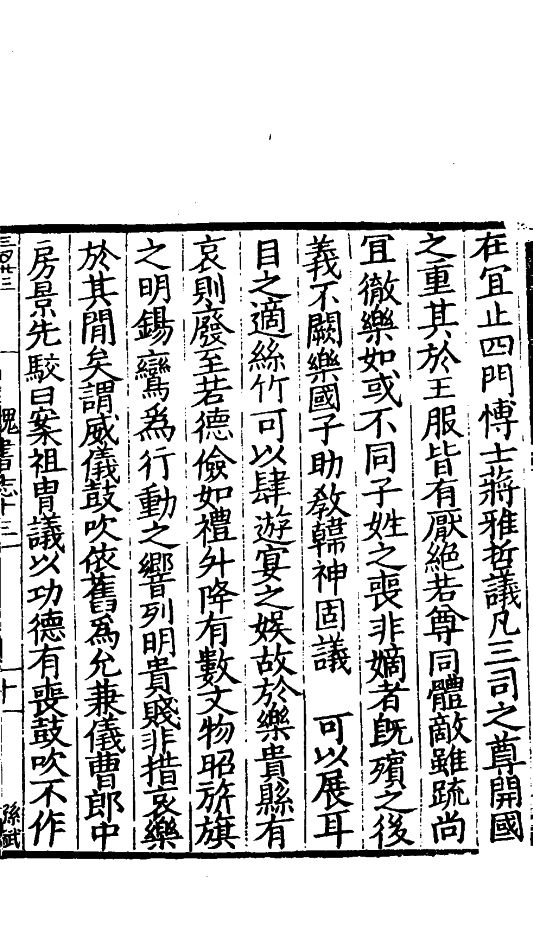 在宜止四門博士蔣雅哲議凡三司之尊開國
之重其於王服皆有厭絕若尊同體敵雖疏尚
宜徹樂如或不同子姓之喪非嫡者旣殯之後
義不闕樂國子助敎韓神固議 可以展耳
目之適絲竹可以肆遊宴之娛故於樂貴縣有
哀則廢至若德儉如禮升降有數文物昭旂旗
之明錫鸞爲行動之響列明貴賤非措哀樂
於其閒矣謂威儀鼓吹依舊爲允兼儀曹郎中
房景先駮曰案祖胄議以功德有喪鼓吹不作
魏書志十三
孫斌